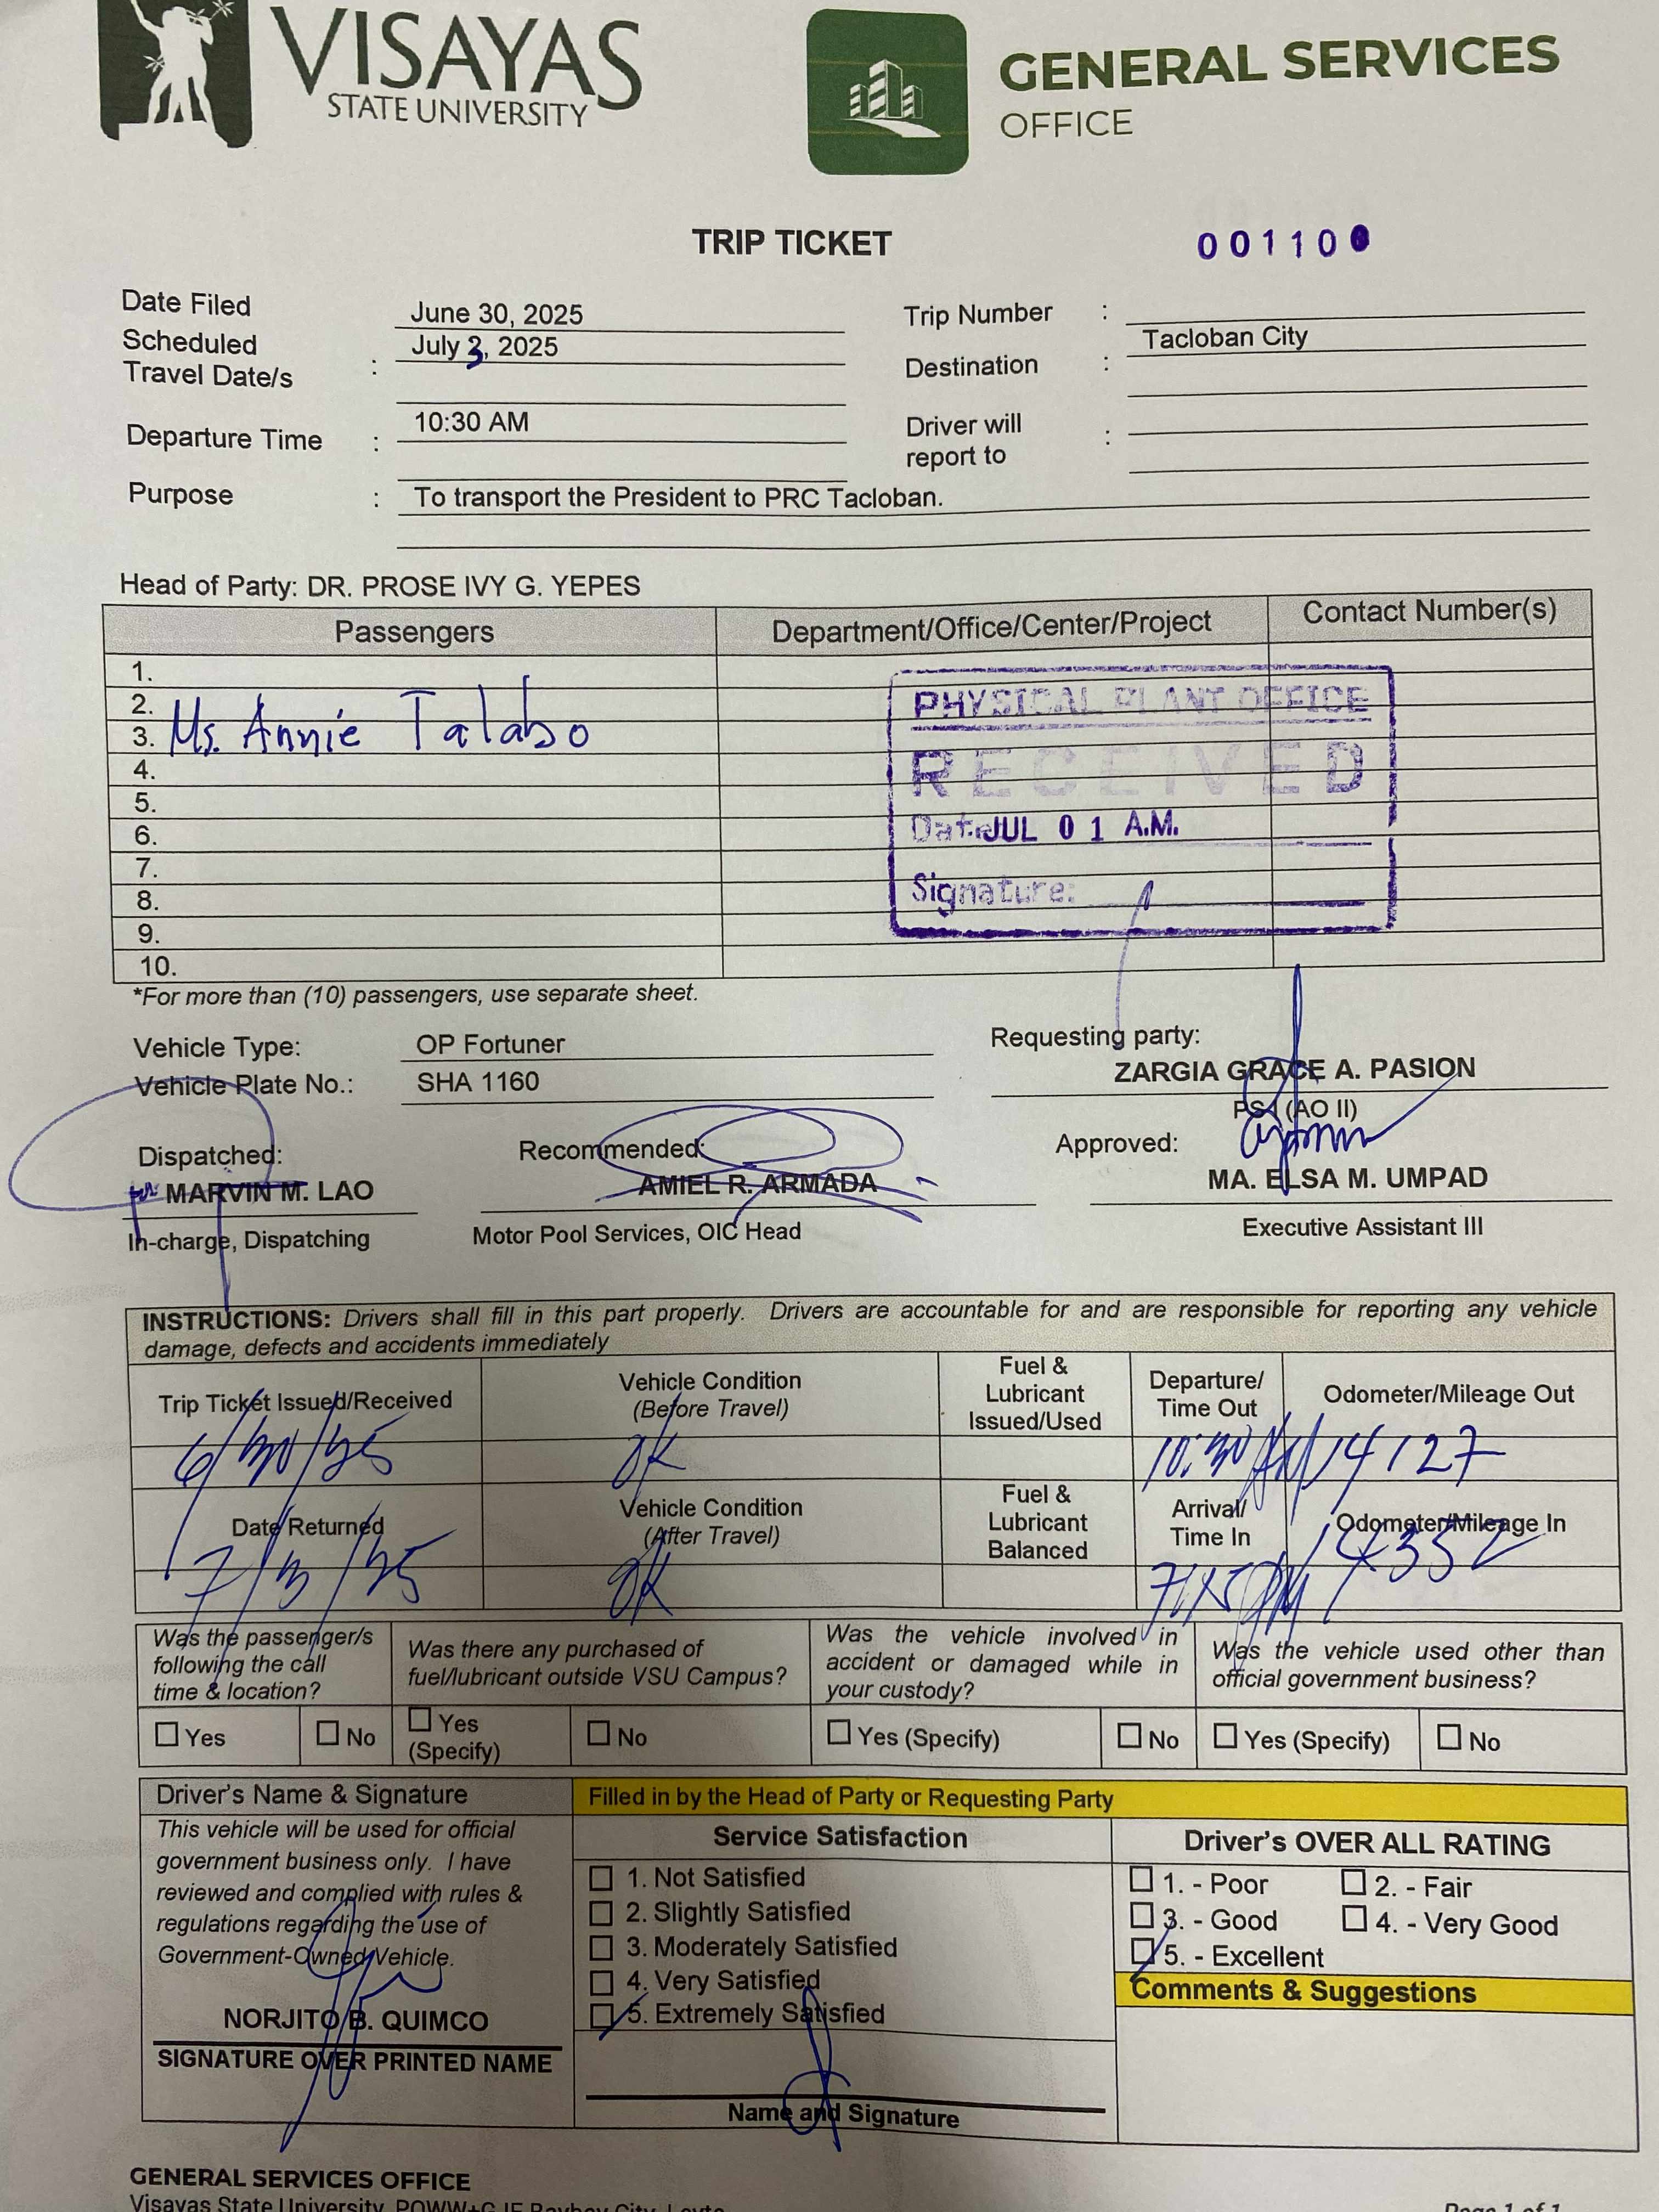 VISAYAS
STATE UNIVERSITY
GENERAL SERVICES
OFFICE
TRIP TICKET
Date Filed June 30, 2025
Trip Number :
Scheduled Travel Date/s : July 3, 2025
Destination : Tacloban City
Departure Time : 10:30 AM
Driver will report to :
Purpose : To transport the President to PRC Tacloban.
Head of Party: DR. PROSE IVY G. YEPES
Passengers Department/Office/Center/Project Contact Number(s)
1.
2.
3. Ms. Annie Talabo
4.
5.
6.
7.
8.
9.
10.
PHYSICAL PLANT OFFICE
RECEIVED
Date: JUL 01 A.M.
Signature:
*For more than (10) passengers, use separate sheet.
Vehicle Type: OP Fortuner
Vehicle Plate No.: SHA 1160
Requesting party:
ZARGIA GRACE A. PASION
(AO II)
Dispatched:
MARVIN M. LAO
In-charge, Dispatching
Recommended:
AMIEL R. ARMADA
Motor Pool Services, OIC Head
Approved:
MA. ELSA M. UMPAD
Executive Assistant III
INSTRUCTIONS: Drivers shall fill in this part properly. Drivers are accountable for and are responsible for reporting any vehicle
damage, defects and accidents immediately
Trip Ticket Issued/Received
Vehicle Condition
(Before Travel)
Fuel &
Lubricant
Issued/Used
Departure/
Time Out
Odometer/Mileage Out
6/30/25 OK 10:30 AM 14127
Date Returned
Vehicle Condition
(After Travel)
Fuel &
Lubricant
Balanced
Arrival/
Time In
Odometer/Mileage In
7/3/25 OK 14352
Was the passenger/s
following the call
time & location?
Was there any purchased of
fuel/lubricant outside VSU Campus?
Was the vehicle involved in
accident or damaged while in
your custody?
Was the vehicle used other than
official government business?
Yes No Yes
(Specify) No Yes (Specify) No Yes (Specify) No
Driver's Name & Signature
This vehicle will be used for official
government business only. I have
reviewed and complied with rules &
regulations regarding the use of
Government-Owned Vehicle.
NORJITO B. QUIMCO
SIGNATURE OVER PRINTED NAME
Filled in by the Head of Party or Requesting Party
Service Satisfaction
1. Not Satisfied
2. Slightly Satisfied
3. Moderately Satisfied
4. Very Satisfied
5. Extremely Satisfied
Name and Signature
Driver's OVER ALL RATING
1. - Poor 2. - Fair
3. - Good 4. - Very Good
5. - Excellent
Comments & Suggestions
GENERAL SERVICES OFFICE
Visayas State University,
Page 1 of 1